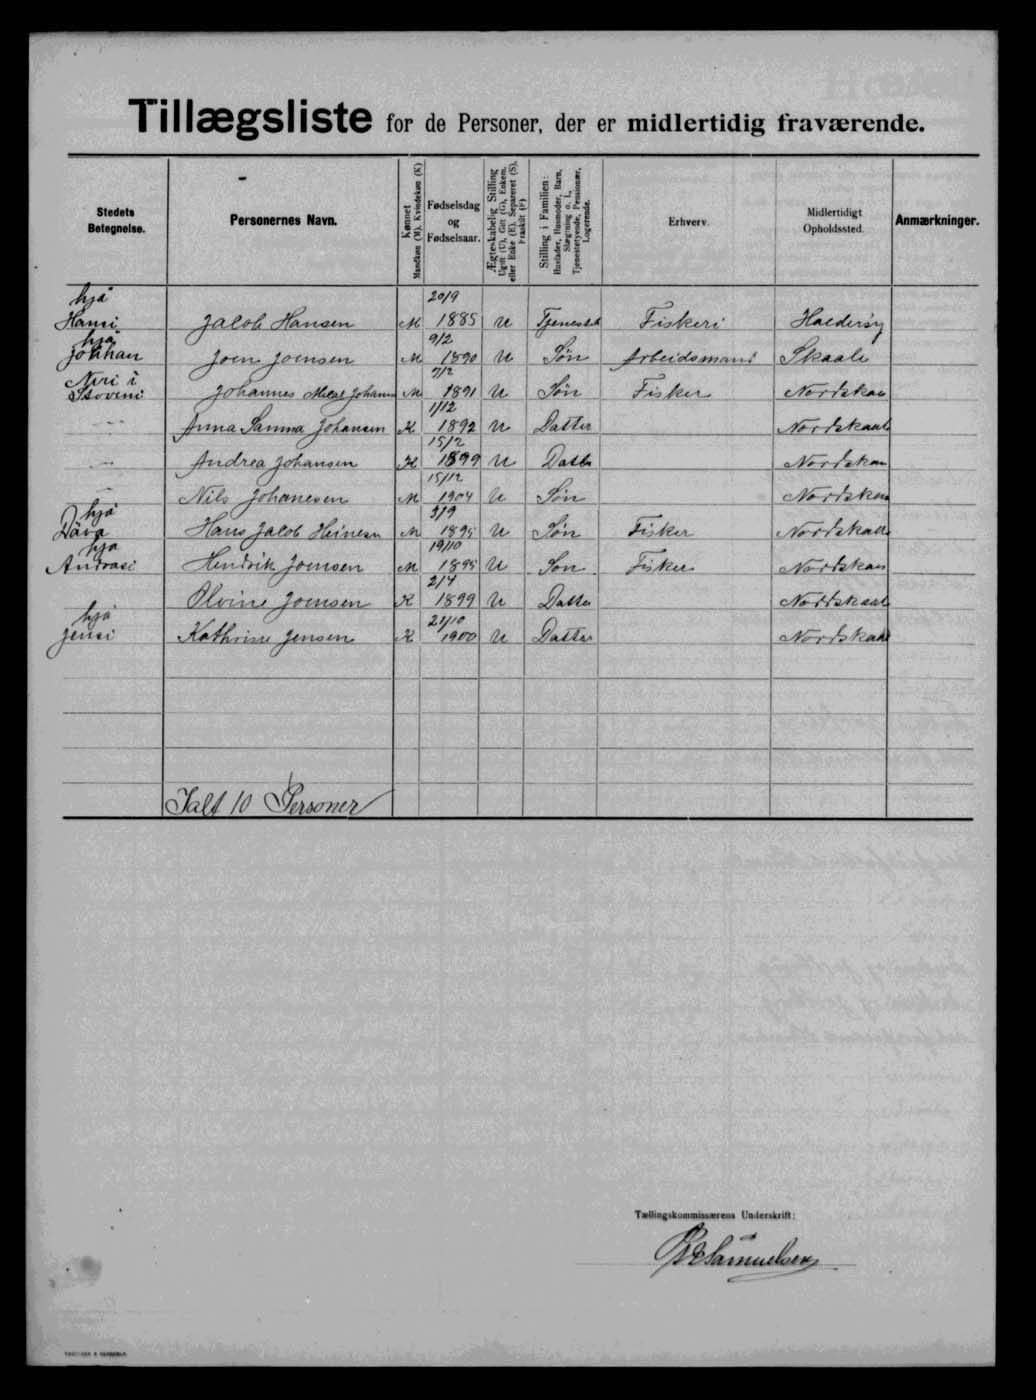 Tillægsliste for de Personer, der er midlertidig fraværende.
Stedets Betegnelse.
Personernes Navn.
Kønnet Mandkøn (M). Kvindekøn (K)
Fødselsdag og Fødselsaar.
Ægteskabelig Stilling Ugift (U), Gift (G), Enkem. eller Enke (E), Separeret (S), Fraskilt (F)
Stilling i Familien: Husfader, Husmoder, Barn, Slægtning o. l., Tjenestetyende, Pensionær, Logerende.
Erhverv.
Midlertidigt Opholdssted.
Anmærkninger.
hjá Hansi Jacob Hansen M 20/9 1885 U Fiskeri
hjá Joen Joensen M 9/2 1890 U Søn Arbeidsmand Skaale
Niri i Johannes M 7/12 1891 U Søn Fisker Nordskaa
Anna Sanna Johansen K 1/12 1892 U Datter Nordskaale
Andrea Johansen K 15/2 1899 U Datter Nordskaa
Nils Johanesen M 15/12 1904 U Søn Nordskaa
hjá Dáva Hans Jacob Heinesen M 3/9 1895 U Søn Fisker Nordskaale
hjá Andrasi Hendrik Joensen M 19/10 1895 U Søn Fisker Nordskaa
Olvine Joensen K 2/4 1899 U Datter Nordskaale
hjá Jensi Kathrine Jensen K 21/10 1900 U Datter Nordskaale
Ialt 10 Personer
Tællingskommissærens Underskrift:
Samuelsen